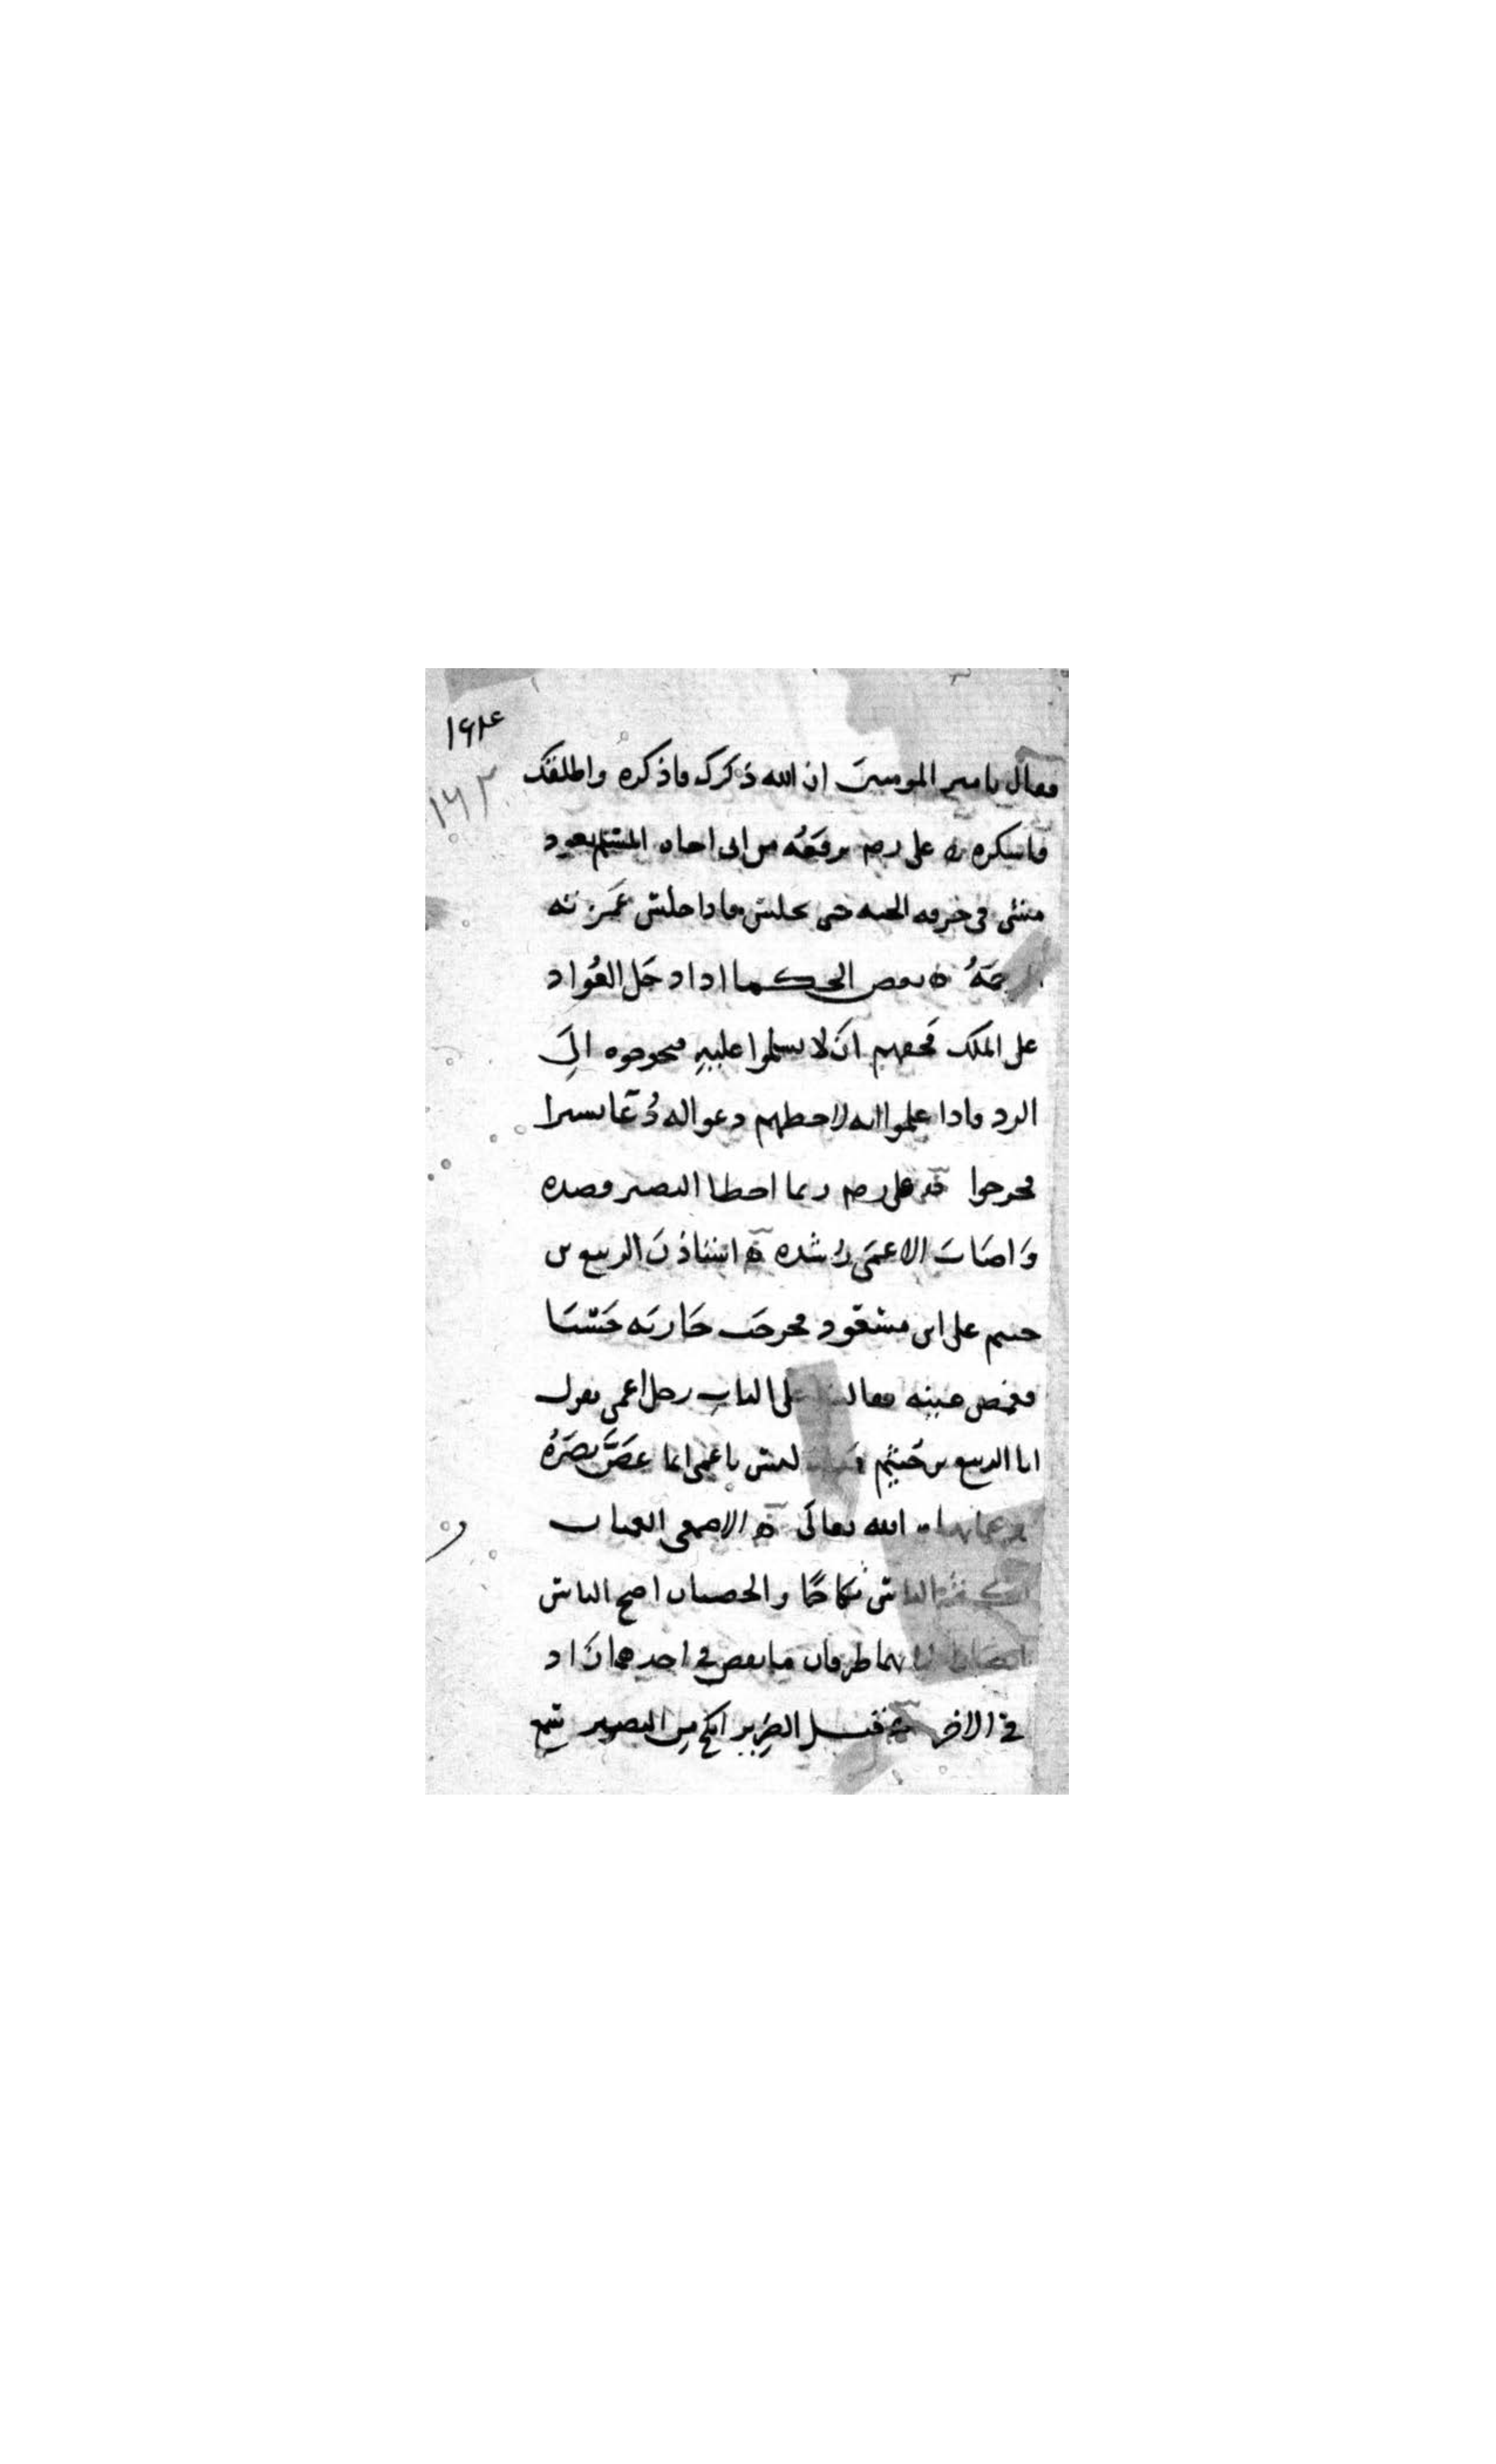 ١٦٤
١٦٢
فقال يا امير المومنين ان الله ذكرك فاذكره واطلقك
فاشكره ه على رضه يرفعه من اتى اخاه المسلم يعود
مشى في خرفه الجنه حتى يجلس فاذا جلس غمرته
الرحمَةُ ه بعض الحكما اذا دخل العُواد
على الملك فحقهم ان لا يسلموا عليه فيحوجوه الى
الرد فاذا علموا انه لاحظهم دعوا له دُعَا يسيرا
فخرجوا على رضه ربما اخطا البصير قصده
وَاصَابَ الاعمَى رُشده ه استاذنَ الربيع بن
خثيم على ابن مسعود فخرجَت جَاريَه حَسْنَا
فغمض عينيه فقالت على الباب رجل اعمى يقول
انا الربيع بن خُثَيْم فقال ليس باعمى انما غَضَّ بصَرَهُ
عما نهاه الله تعالى ه الاصمعى العميان
اكثر الناس نكاحًا والخصيان اصح الناس
ابصارا لانهما طرفان ما نقص في احدهما زاد
في الاخر ه قيل الضَرِير انكح من البصير